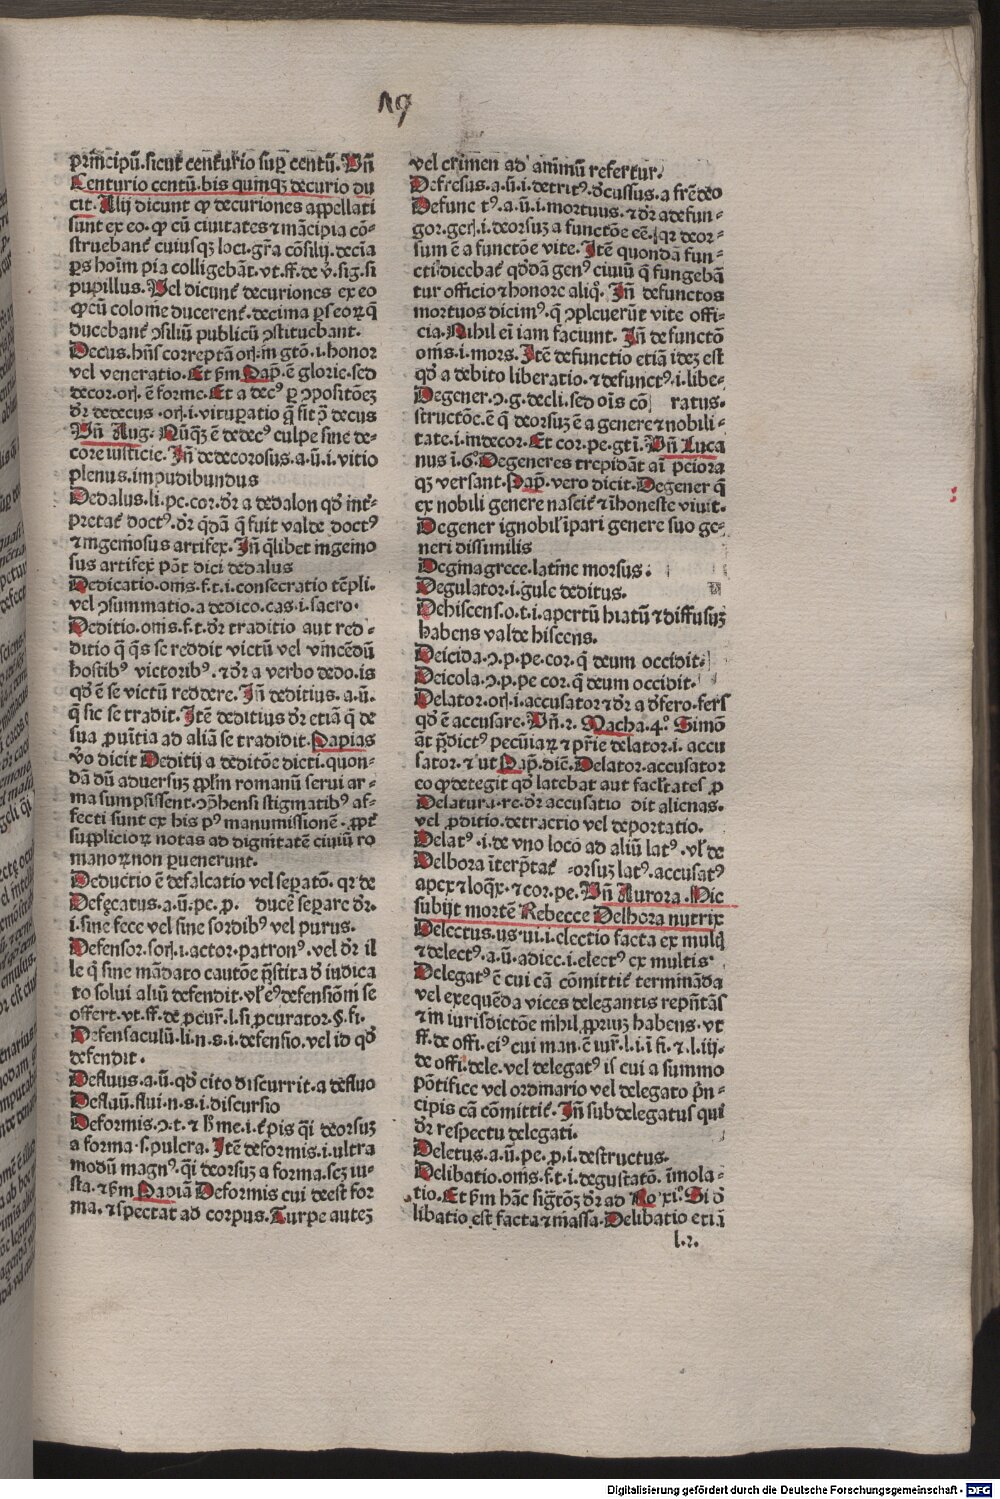 19
principū.sicut centurio sup̱ centū.Vñ
Centurio centū.bis quinqꝫ decurio du
cit.Alij dicunt ꝙ decuriones appellati
sunt ex eo.ꝙ cū ciuitates ⁊ mācipia cō-
struebant̄ cuiusqꝫ loci.gr̄a cōsilij.decīa
ꝑs hoīm pia colligebāt̄.vt.ff.de v̄.sig.si
pupillus.Vel dicunt̄ decuriones ex eo
ꝙ cū colonie ducerent̄.decima ꝑs eoꝝ q̄
ducebant̄ ↄsiliū publicū ↄstituebant.
Decus.hn̄s correptā orꝭ.in gtō.i.honor
vel veneratio.Et ẜm Pap̄.ē glorie.sed
decor.orꝭ.ē forme.Et a decꝰ ꝑ ↄpositōeꝫ
dr̄ dedecus.orꝭ.i.vituꝑatio q̄ fit ↄ̄ decus
Vñ Aug.Nūqꝫ ē dedecꝰ culpe sine de-
core iusticie.Jñ dedecorosus.a.ū.i.vitio
plenus.impudibundus
Dedalus.li.pe.cor.dr̄ a dedalon qd̄ int̄-
pretat̄ doctꝰ.dr̄ qͥdā q̄ fuit valde doctꝰ
⁊ ingeniosus artifex.Jñ qͥlibet ingenio
sus artifex pōt dici dedalus
Dedicatio.onis.f.t.i.consecratio tēpli.
vel ↄsummatio.a dedico.cas.i.sacro.
Deditio.onis.f.t.dr̄ traditio aut red-
ditio q̄ qͥs se reddit victū vel vincēdū
hostibꝰ victoribꝰ.⁊ dr̄ a verbo dedo.is
qd̄ ē se victū reddere.Jñ deditius.a.ū.
q̄ sic se tradit.Jtē deditius dr̄ etiā q̄ de
sua ꝓuītia ad aliā se tradidit.Papias
v̄o dicit Deditij a dēditōe dicti.quon-
dā dū aduersuꝫ ꝓplm̄ romanū serui ar-
ma sumpsissent.ↄp̄hensi stigmatibꝰ af-
fecti sunt ex his pꝰ manumissionē.ꝓpt̄
supplicioꝝ notas ad dignitatē ciuiū ro
manoꝝ non ꝑuenerunt.
Deductio ē defalcatio vel seꝑatō.qr de
Defęcatus.a.ū.pe.ꝓ. ducē seꝑare dr̄.
i.sine fece vel sine sordibꝰ vel purus.
Defensor.sorꝭ.i.actor.patronꝰ.vel dr̄ il
le qͥ sine mādato cautōe p̄stita d̄ iudica
to solui aliū defendit.vl̓ eꝰ defensiōni se
offert.vt.ff.de ꝓcur̄.l.si ꝓcurator.§.fi.
Defensaculū.li.n.s.i.defensio.vel id qd̄
defendit.
Defluus.a.ū.qd̄ cito discurrit.a defluo
Defluū.flui.n.s.i.discursio
Deformis.ↄ.t.⁊ h̓ me.i.t̓pis q̄i deorsuꝫ
a forma.s.pulcra.Jtē deformis.i.ultra
modū magnꝰ.q̄i deorsuꝫ a forma.scꝫ iu-
sta.⁊ ẜm Papiā Deformis cui deest for
ma.⁊ spectat ad corpus.Turpe auteꝫ
vel crimen ad animū refertur.
Defresus.a.ū.i.detritꝰ.decussus.a frēdeo
Defunctꝰ.a.ū.i.mortuus.⁊ dr̄ a defun-
gor.gerꝭ.i.deorsuꝫ a functōe eē.qr deor-
sum ē a functōe vite.Jtē quondā fun-
cti dicebāt̄ qd̄dā genꝰ ciuiū q̄ fungebā
tur officio ⁊ honore aliqͦ.Jñ defunctos
mortuos dicimꝰ.q̄ ↄpleuerūt vite offi-
cia.Nihil eī iam faciunt.Jñ de functō
onis.i.mors.Jtē defunctio etiā ideꝫ est
qd̄ a debito liberatio.⁊ defunctꝰ.i.libe-
Degener.ↄ.g.decli.sed oīs cō ratus.
structōe.ē q̄ deorsuꝫ ē a genere ⁊ nobili-
tate.i.indecor.Et cor.pe.gti.Vñ Luca
nus i.6ͦ.Degeneres trepidāt aī peiora
qꝫ versant.Pap̄.vero dicit.Degener q̄
ex nobili genere nascit̄ ⁊ ihoneste viuit.
Degener ignobil̓ ipari genere suo ge-
neri dissimilis
Degma grece.latine morsus.
Degulator.i.gule deditus.
Dehiscens.o.t.i.apertū hiatū ⁊ diffusuꝫ
habens valde hiscens.
Deicida.ↄ.p.pe.cor.q̄ deum occidit.
Deicola.ↄ.p.pe cor.q̄ deum occidit.
Delator.orꝭ.i.accusator ⁊ dr̄ a d̄fero.fers
qd̄ ē accusare.Vñ.2.Macha.4ͦ.Simō
āt p̄dictꝰ pecūiaꝝ ⁊ pr̄ie delator.i.accu
sator.⁊ ut Pap̄.dic̄.Delator.accusator
eo ꝙ detegit qd̄ latebat aut facl̓tates ꝓ
Delatura.re.dr̄ accusatio dit alienas.
vel ꝓditio.detractio vel deportatio.
Delatꝰ.i.de vno loco ad aliū latꝰ.vl̓ de
Delbora īterp̄tat̄ -orsuꝫ latꝰ.accusatꝰ
apex ⁊ loqͣx.⁊ cor.pe.Vñ Aurora.Hic
subijt mortē Rebecce Delbora nutrix
Delectus.us.ui.i.electio facta ex multꝭ
⁊ delectꝰ.a.ū.adiec.i.electꝰ ex multis
Delegatꝰ ē cui cā cōmittit̄ termināda
vel exequēda vices delegantis repn̄tās
⁊ in iurisdictōe nihil ꝓpriuꝫ habens.vt
ff.de offi.eiꝰ cui man.ē iur̄.l.i.ī fi.⁊ l.iij.
de offi.dele.vel delegatꝰ is cui a summo
pōtifice vel ordinario vel delegato p̄n-
cipis cā cōmittit̄.Jñ subdelegatus qui
dr̄ respectu delegati.
Deletus.a.ū.pe.ꝓ.i.destructus.
Delibatio.onis.f.t.i.degustatō.īmola-
tio.Et ẜm hāc sig̓tōꝫ dr̄ ad Ro.xi.Si d̄
libatio est facta ⁊ massa.Delibatio etiā
l.2.
Digitalisierung gefördert durch die Deutsche Forschungsgemeinschaft - DFG